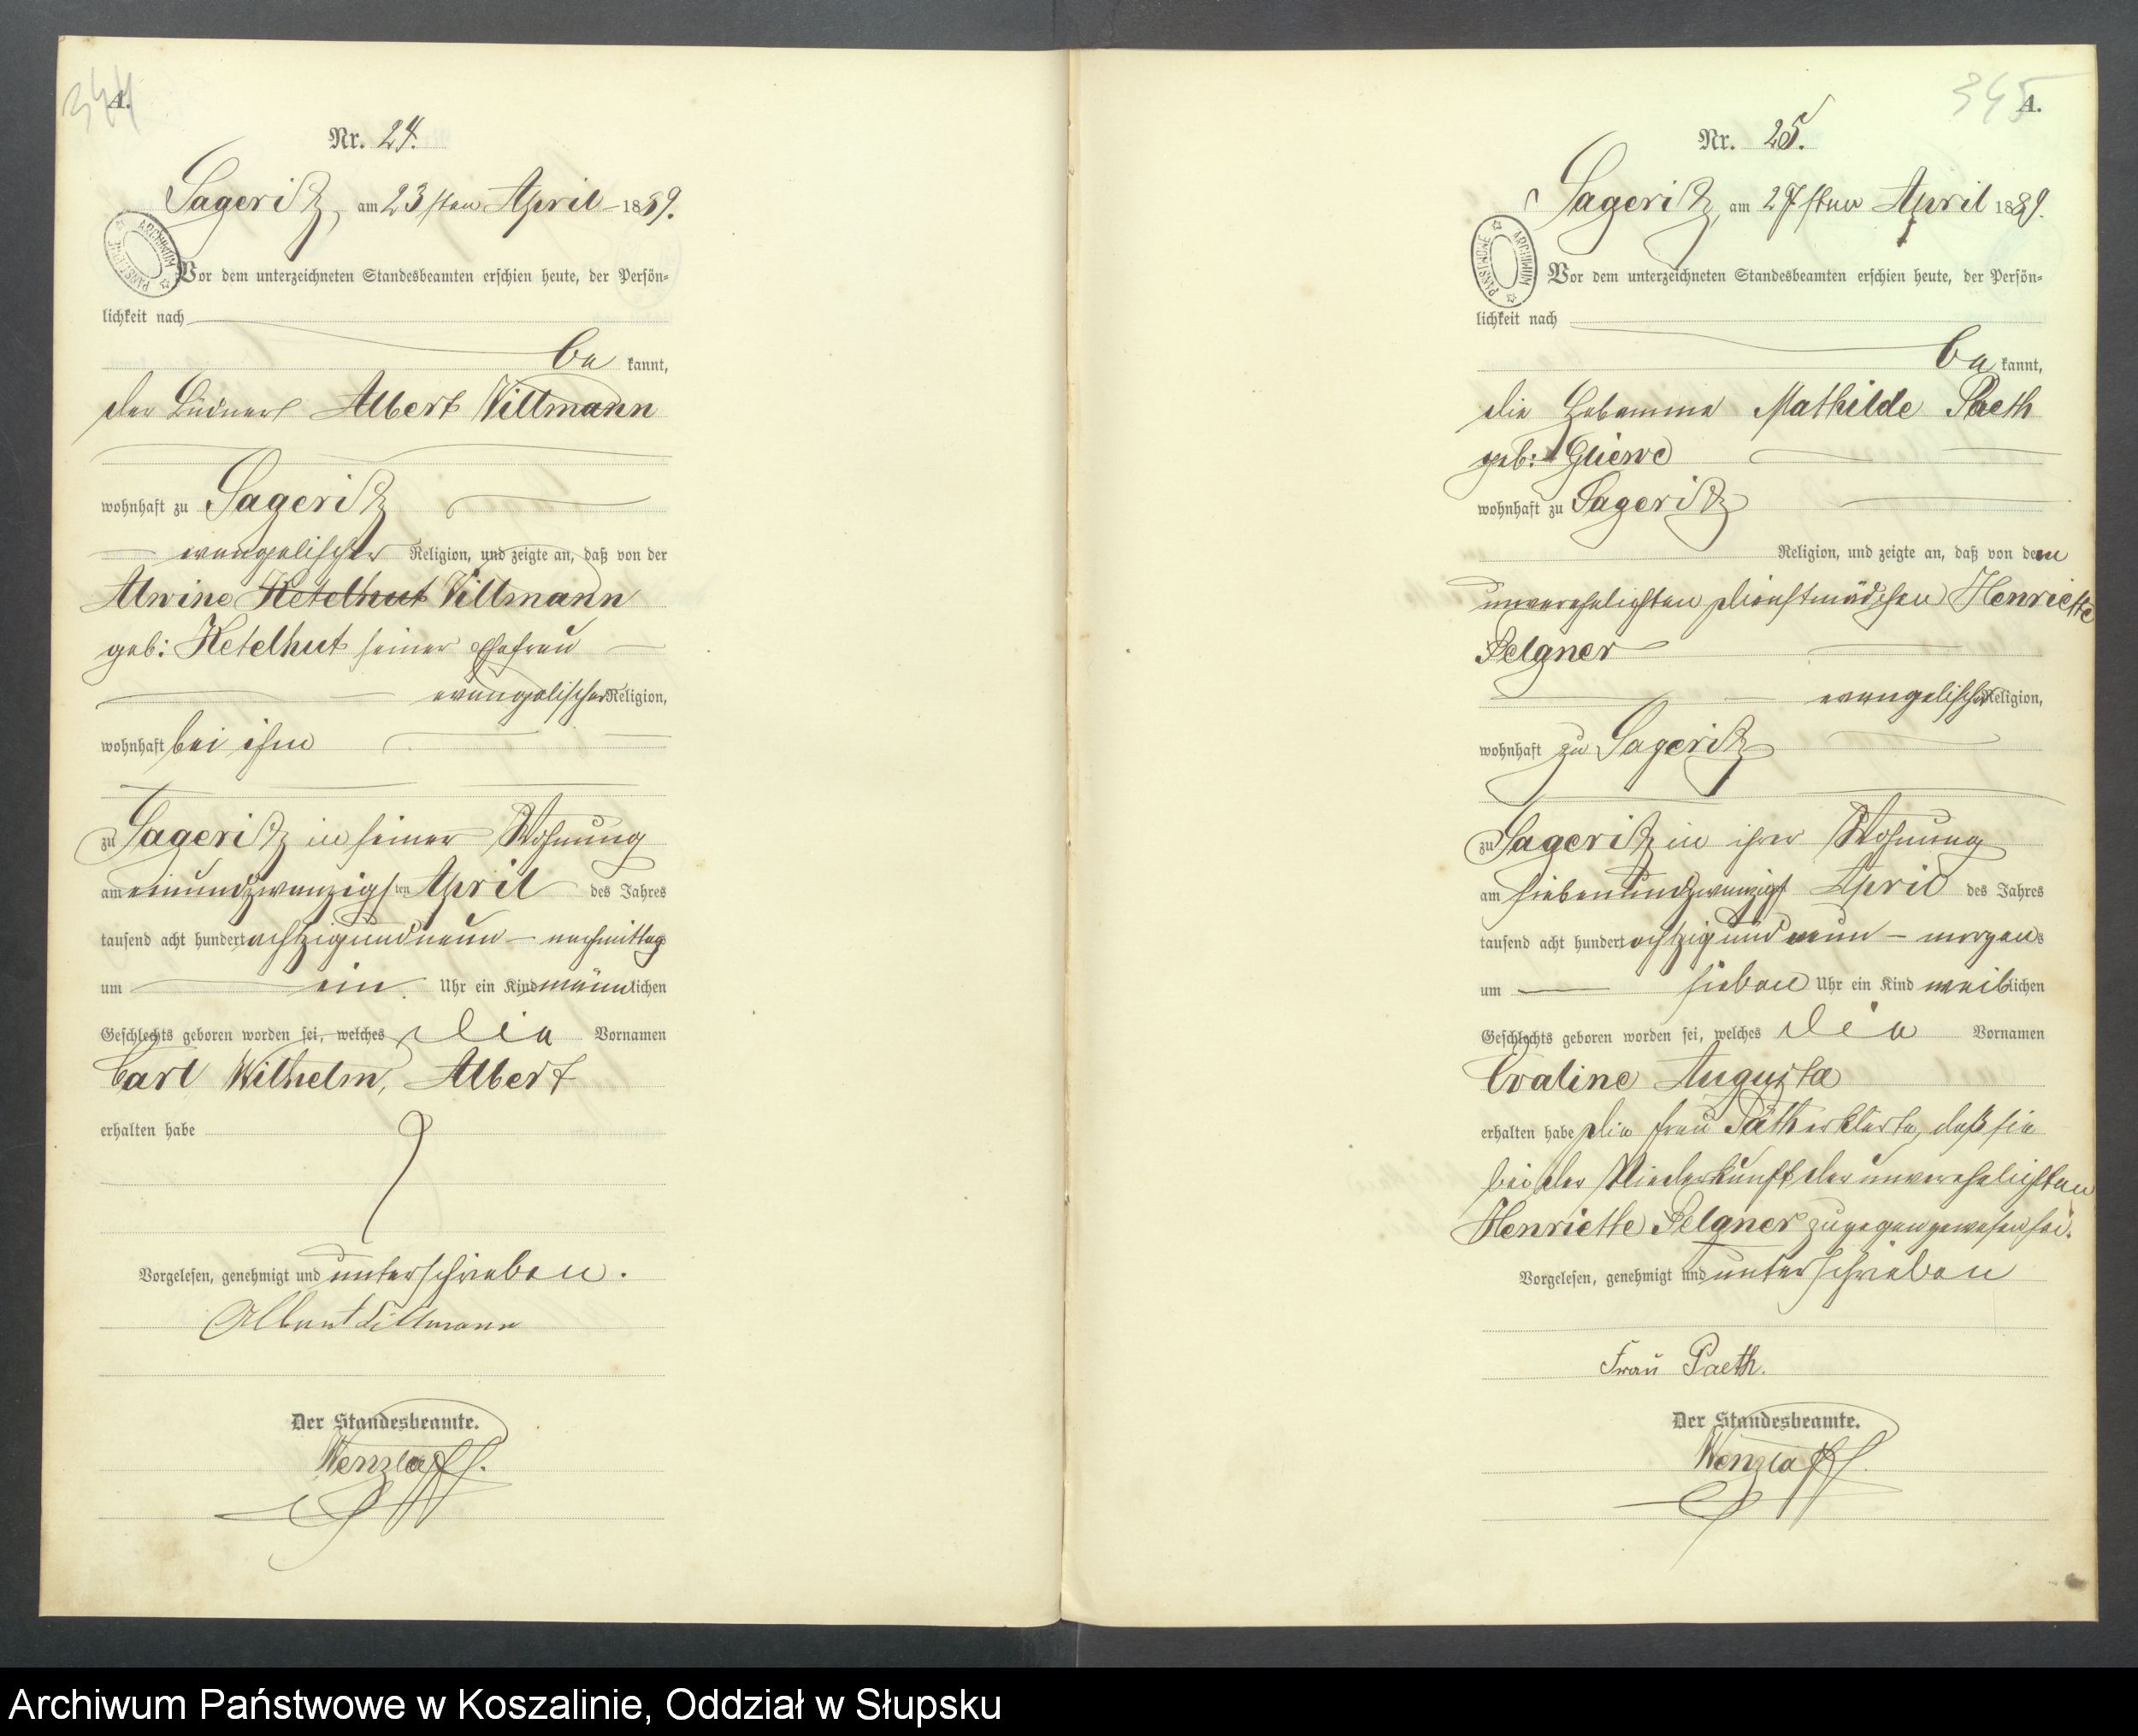 344
A.
Nr. 24.
Sageritz, am 23sten April 1889.
ARCHIWUM PAŃSTWOWE
Vor dem unterzeichneten Standesbeamten erschien heute, der Persön-
lichkeit nach
be kannt,
der Büdner Albert Villmann
wohnhaft zu Sageritz
evangelischer Religion, und zeigte an, daß von der
Alwine Ketelhut Villmann
geb: Ketelhut seiner Ehefrau
evangelischer Religion,
wohnhaft bei ihm
zu Sageritz in seiner Wohnung
am einundzwanzigsten April des Jahres
tausend acht hundert achtzig und neun – nachmittags
um ein Uhr ein Kind männlichen
Geschlechts geboren worden sei, welches die Vornamen
Carl Wilhelm, Albert
erhalten habe
Vorgelesen, genehmigt und unterschrieben.
Albert Villmann
Der Standesbeamte.
Wenzlaff.
345
A.
Nr. 25.
Sageritz, am 27sten April 1889.
ARCHIWUM PAŃSTWOWE
Vor dem unterzeichneten Standesbeamten erschien heute, der Persön-
lichkeit nach
be kannt,
die Hebamme Mathilde Paeth
geb: Gliewe
wohnhaft zu Sageritz
Religion, und zeigte an, daß von dem
unverehelichten Dienstmädchen Henriette
Pelgner
evangelischer Religion,
wohnhaft zu Sageritz
zu Sageritz in ihrer Wohnung
am siebenundzwanzigst April des Jahres
tausend acht hundert achtzig und neun – morgens
um sieben Uhr ein Kind weiblichen
Geschlechts geboren worden sei, welches die Vornamen
Evaline Augusta
erhalten habe Die Frau Päth erklärte, daß sie
bei der Niederkunft der unverehelichten
Henriette Pelgner zugegen gewesen sei.
Vorgelesen, genehmigt und unterschrieben
Frau Paeth.
Der Standesbeamte.
Wenzlaff.
Archiwum Państwowe w Koszalinie, Oddział w Słupsku